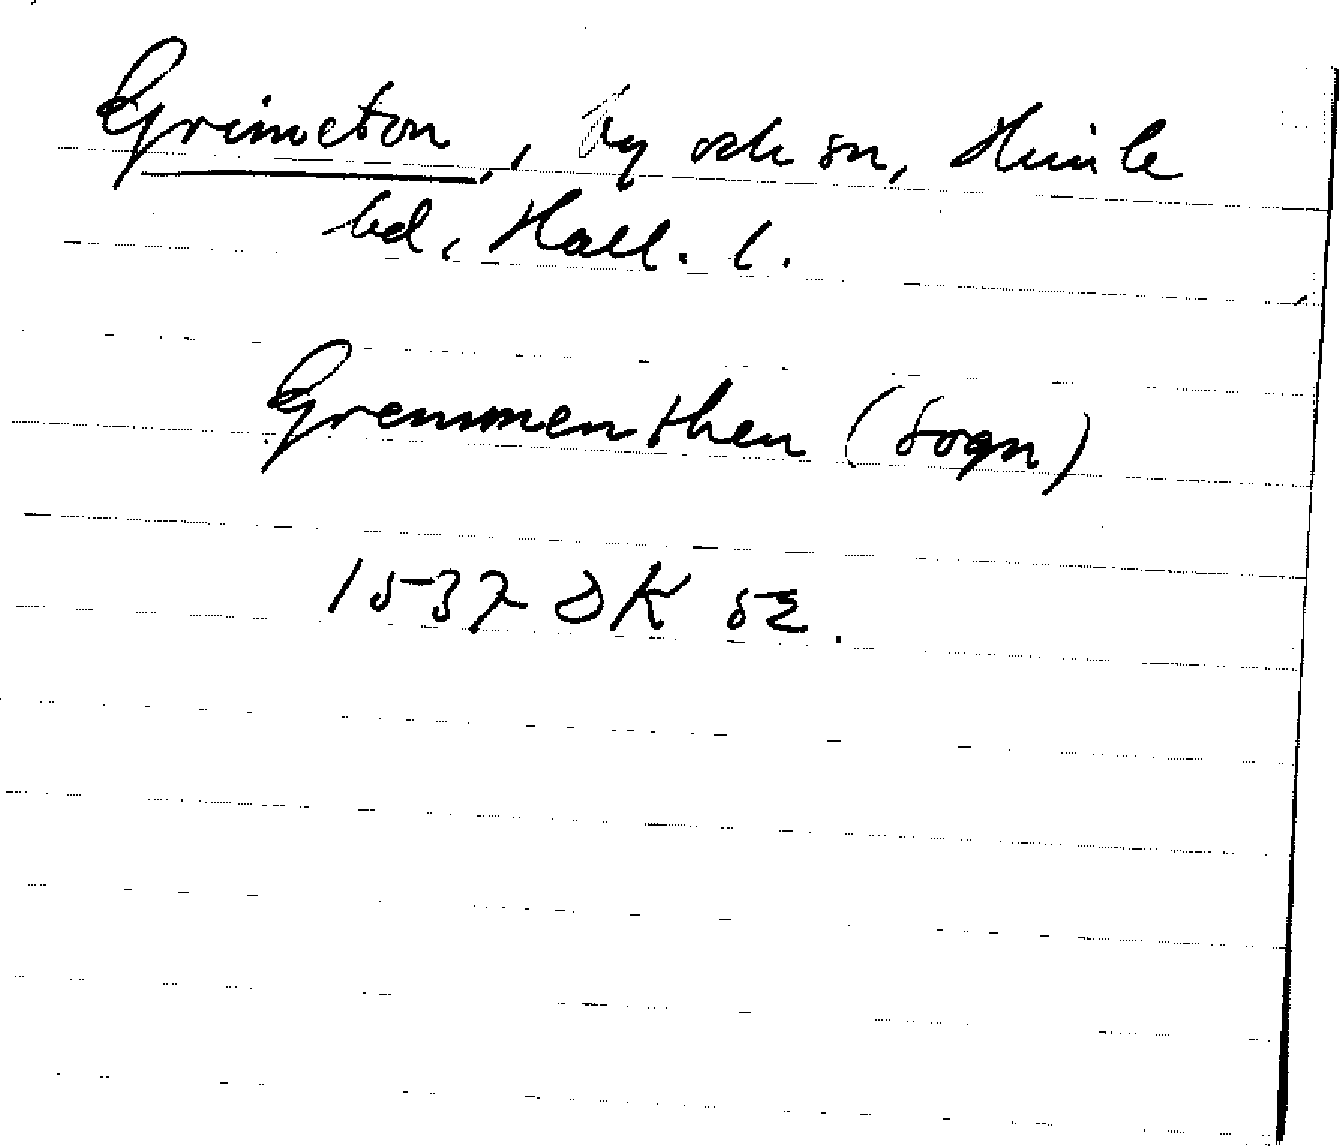 Grimeton, by och sn, Himle
hd, Hall. l.
Gremmenthen (Sogn)
1537 DK 52.